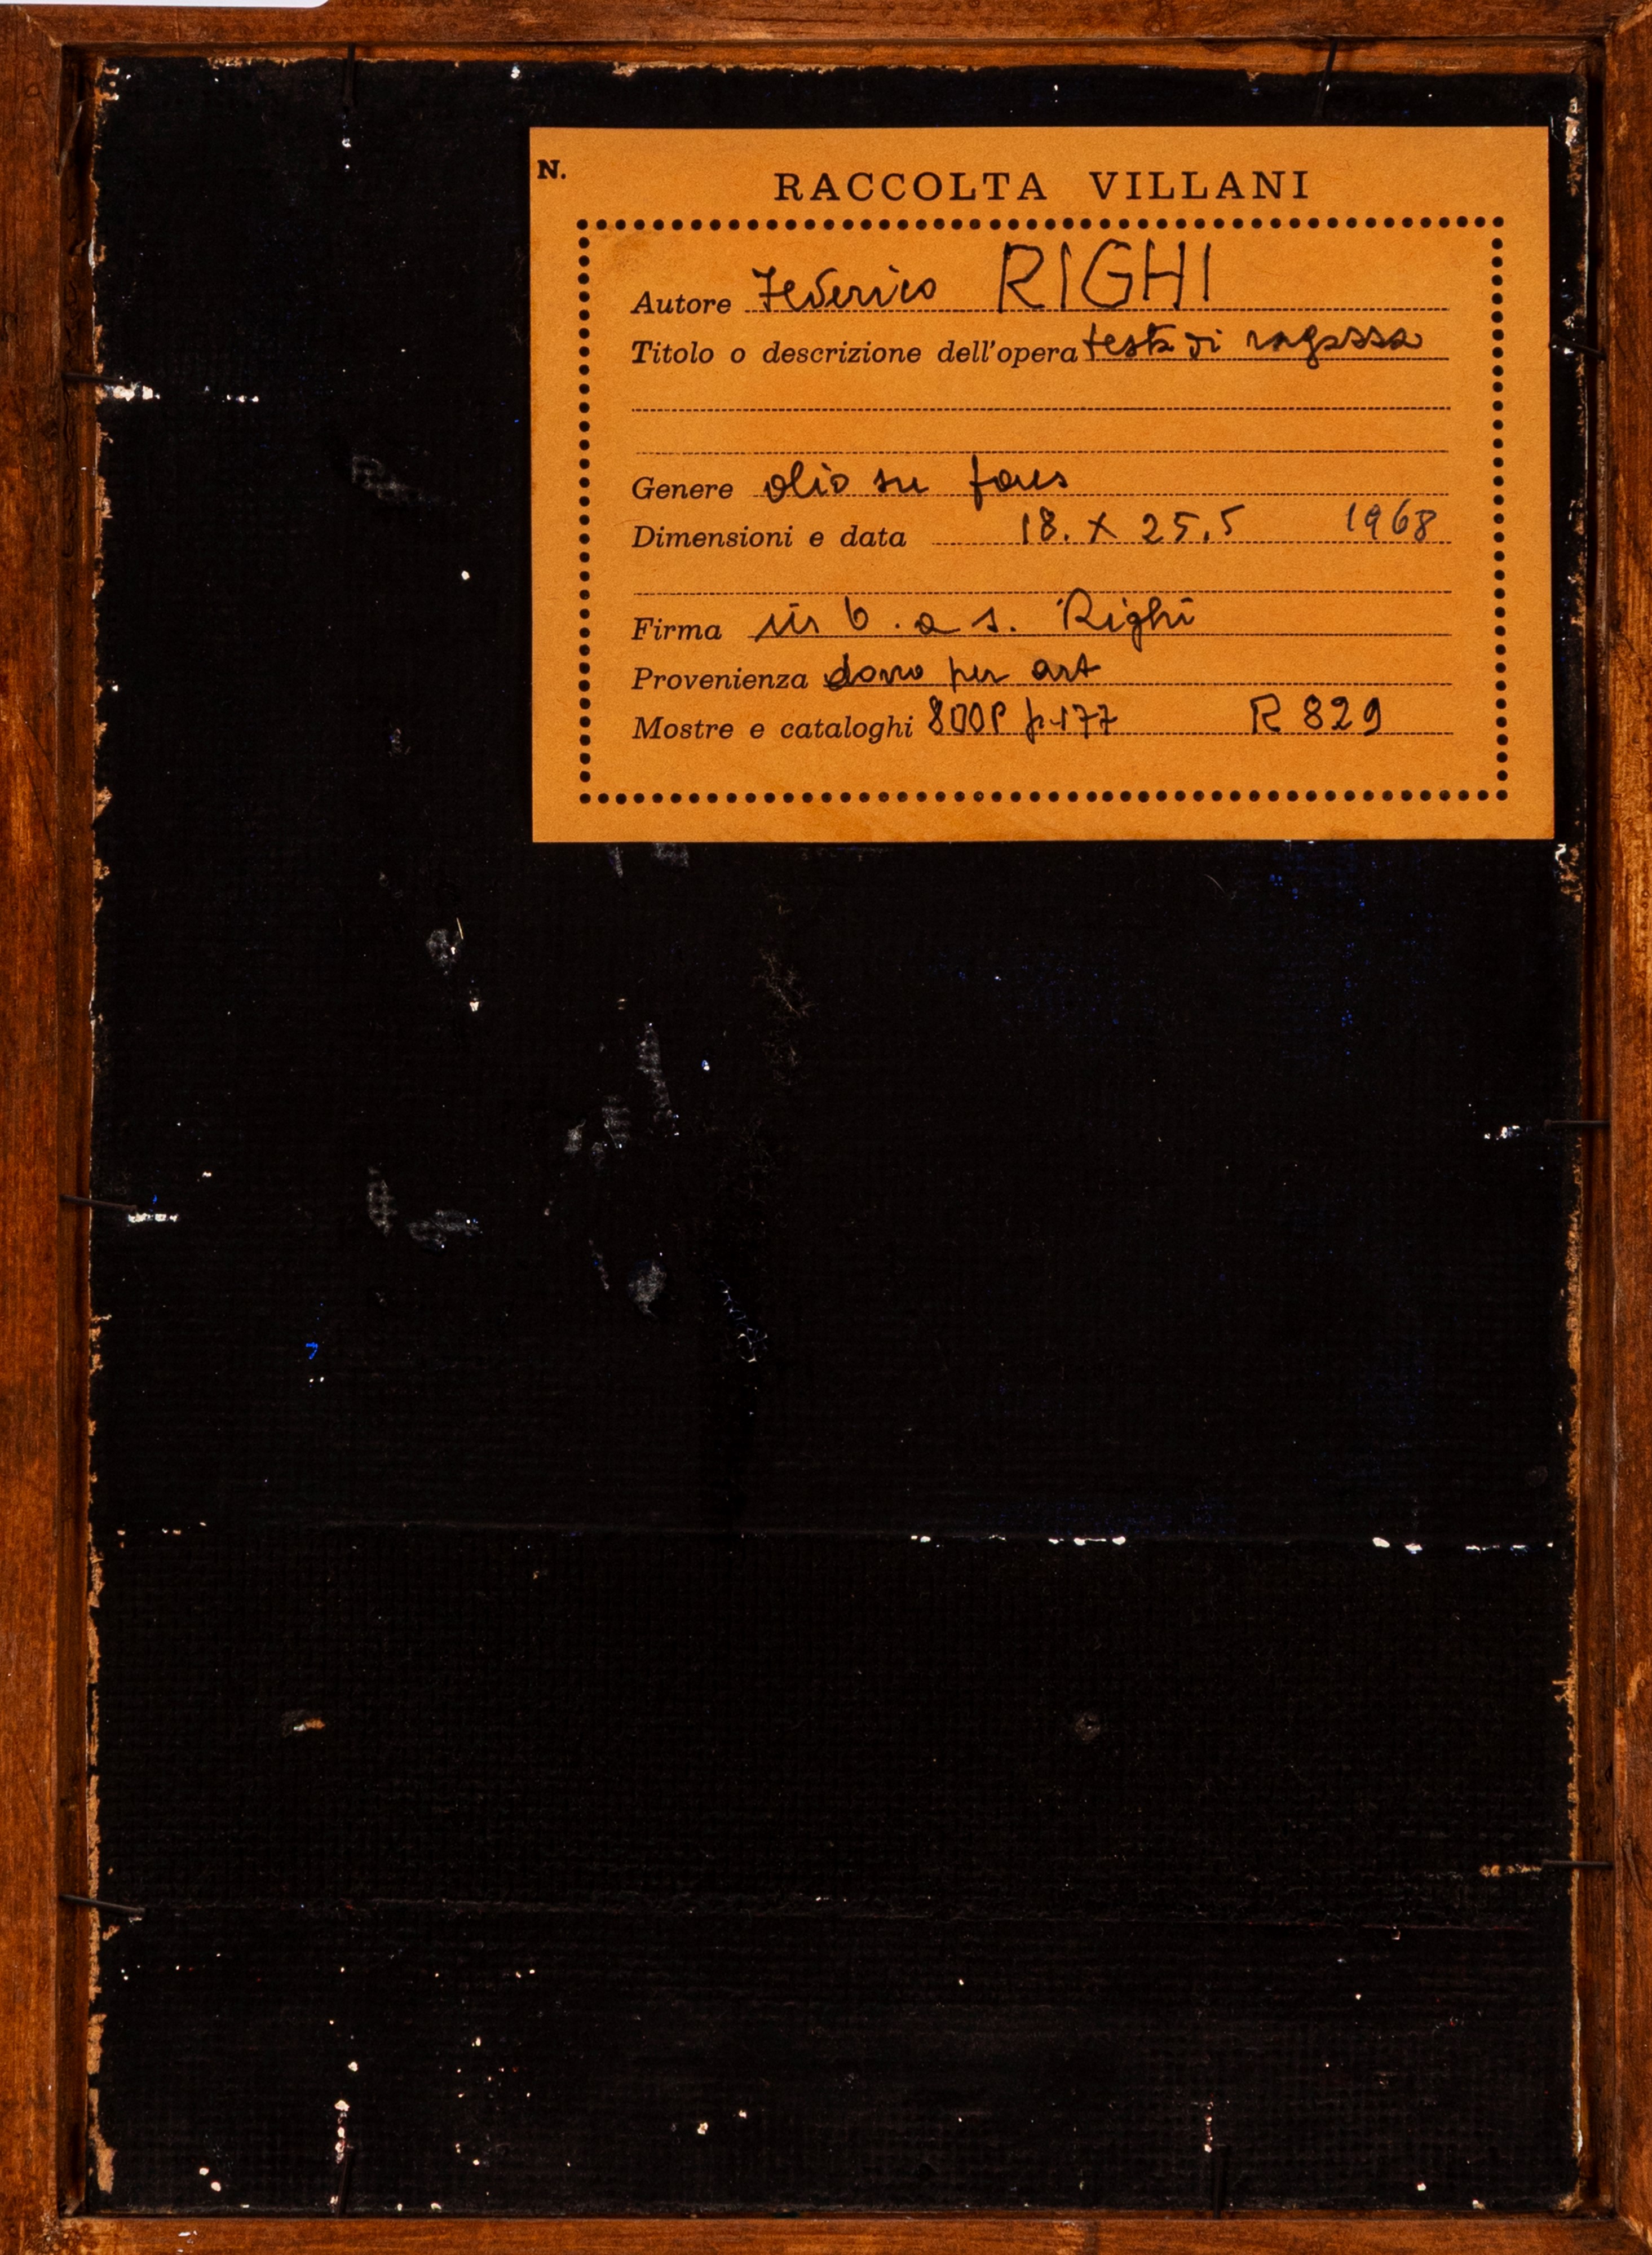 N.
RACCOLTA VILLANI
Autore Federico RIGHI
Titolo o descrizione dell'opera testa di ragazza
Genere olio su faes
Dimensioni e data 18. X 25,5 1968
Firma in b. a s. Righi
Provenienza dono per art
Mostre e cataloghi 800P p. 177 R 829